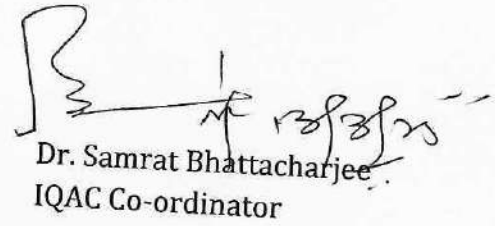 Dr. Samrat Bhattacharjee
IQAC Co-ordinator